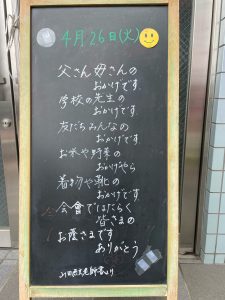 4月26日(火)
父さん母さんの
おかげです
学校の先生の
おかげです
友だちみんなの
おかげです
お米や野菜の
おかげやら
着物や靴の
おかげです
会會ではたらく
皆さまの
お蔭さまです
ありがとう